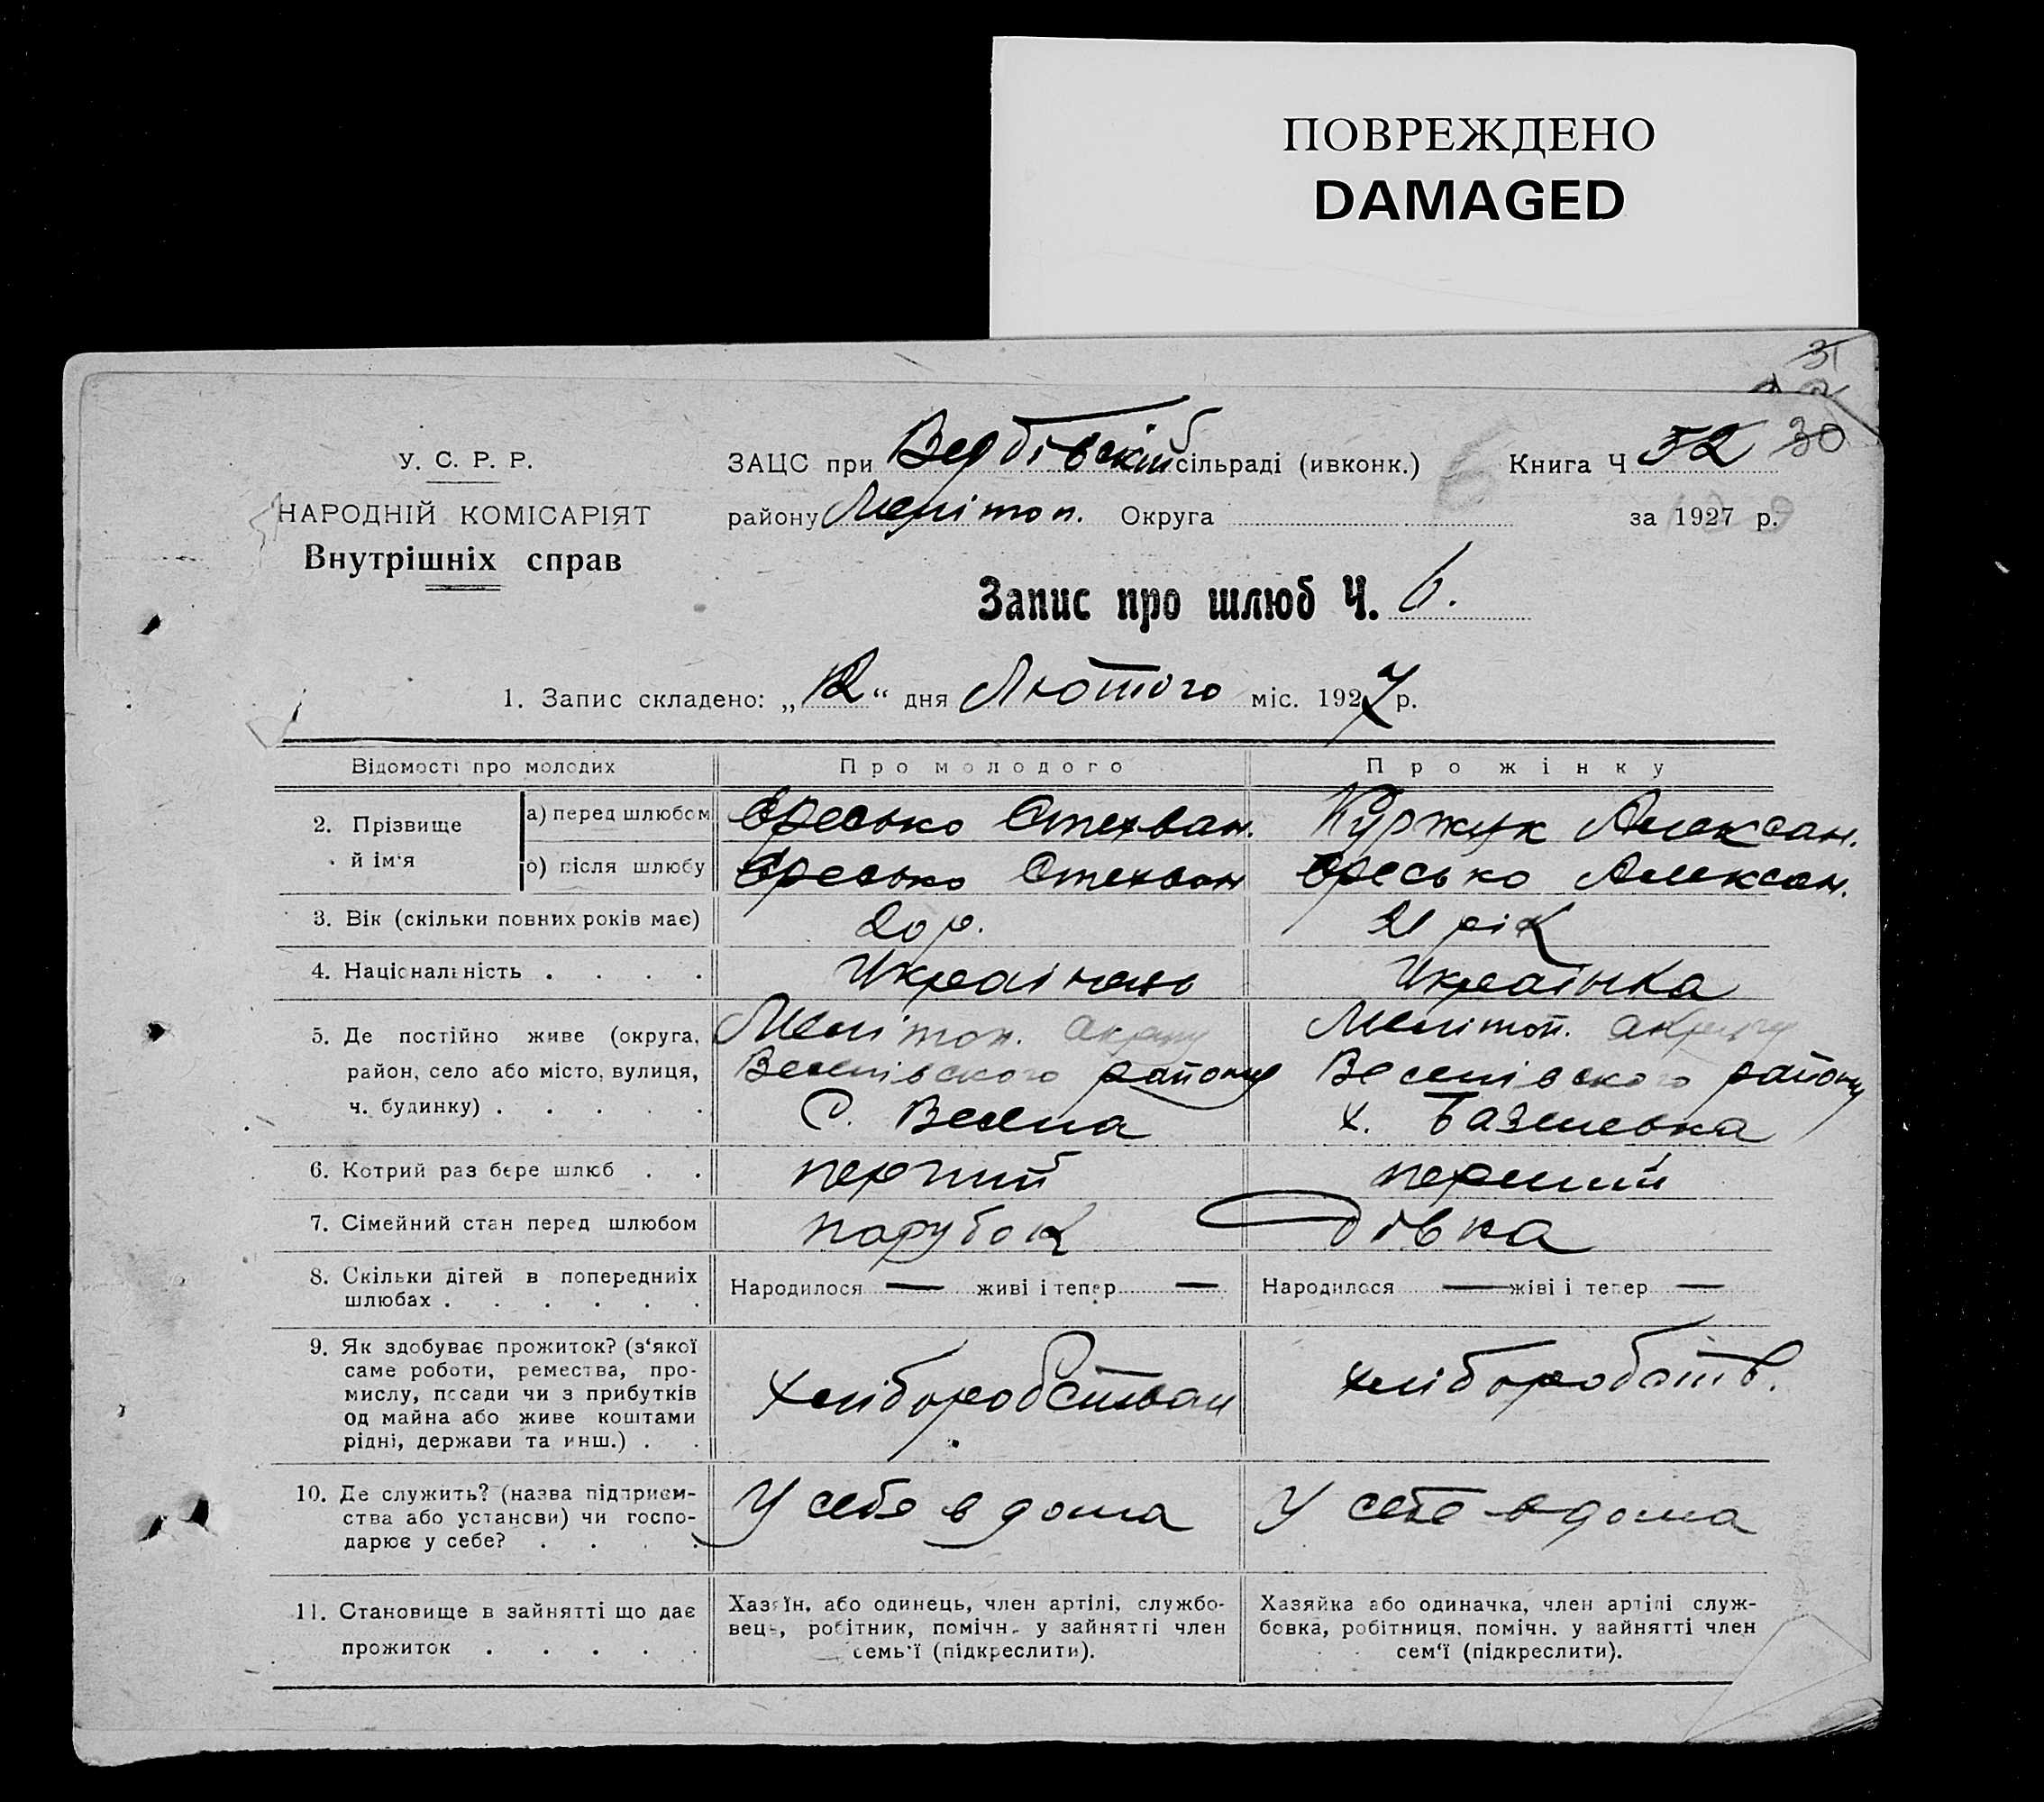 ПОВРЕЖДЕНО
DAMAGED
31
У. С. Р. Р.
НАРОДНІЙ КОМІСАРІЯТ
Внутрішніх справ
ЗАЦС при Вербівській сільраді (ивконк.) Книга Ч 52 30
району Мелітоп. Округа за 1927 р.
6
Запис про шлюб Ч. 6.
1. Запис складено: „12“ дня Лютого міс. 1927 р.
Відомості про молодих Про молодого Про жінку
2. Прізвище й ім‘я
а) перед шлюбом Оресько Стехван. Куржук Алексан.
б) після шлюбу Оресько Стехван Оресько Алексан.
3. Вік (скільки повних років має) 20 р. 21 рік
4. Національність . . . . Украінець Украінка
5. Де постійно живе (округа, Мелітоп. акругу Мелітоп. акругу
район, село або місто, вулиця, Веселівского району Веселівского району
ч. будинку) . . . . . С. Весела х. Базилевка
6. Котрий раз бере шлюб . . перший перший
7. Сімейний стан перед шлюбом парубок дівка
8. Скільки дітей в попередниіх шлюбах . . . . . . Народилося — живі і тепер — Народилося — жіві і тепер —
9. Як здобуває прожиток? (з‘якої
саме роботи, ремества, про-
мислу, посади чи з прибутків
од майна або живе коштами
рідні, держави та инш.) . .
хліборобством хліборобств.
10. Де служить? (назва підприєм-
ства або установи) чи госпо-
дарює у себе? . . . .
У себе в дома У себе в дома
11. Становище в зайнятті що дає
прожиток . . . . .
Хазяїн, або одинець, член артілі, службо-
вець, робітник, помічн. у зайнятті член
семь‘ї (підкреслити).
Хазяйка або одиначка, член артілі служ-
бовка, робітниця, помічн. у зайнятті член
сем‘ї (підкреслити).